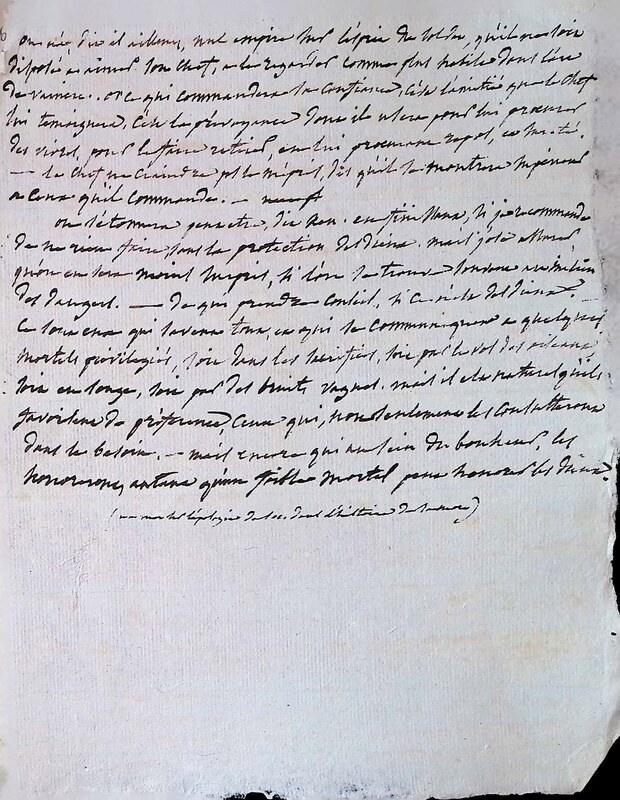 on n'a, dit il ailleurs, nul empire sur l'esprit du soldat, qu'il ne soit
disposé a aimer son chef, a le regarder comme plus habile dans l'art
de vaincre. or ce qui commandera la confiance, c'est l'amitié que le chef
lui temoignera, c'est la prévoyance dont il usera pour lui procurer
des vivres, pour le faire retirer, en lui procurant repos, en sureté.
— le chef ne craindra pas le mépris, dès qu'il se montrera supérieur
a ceux qu'il commande. —
on s'étonnera peut etre, dit Xen. en finissant, si je recommande
de ne rien faire, sans la protection des dieux. mais j'ose assurer
qu'on en sera moins surpris, si l'on se trouve souvent au milieu
des dangers. — de qui prendre conseil, si ce n'est des dieux.
ce sont eux qui savent tout, et qui le communiquent a quelques
mortels privilegiés, soit dans les sacrifices, soit par le vol des oiseaux
soit en songe, soit par des bruits vagues. mais il est naturel qu'ils
favorisent de préference ceux qui, non seulement les consulteront
dans le besoin. — mais encore qui au sein du bonheur, les
honoreront, autant qu'un foible mortel peut honorer les dieux.